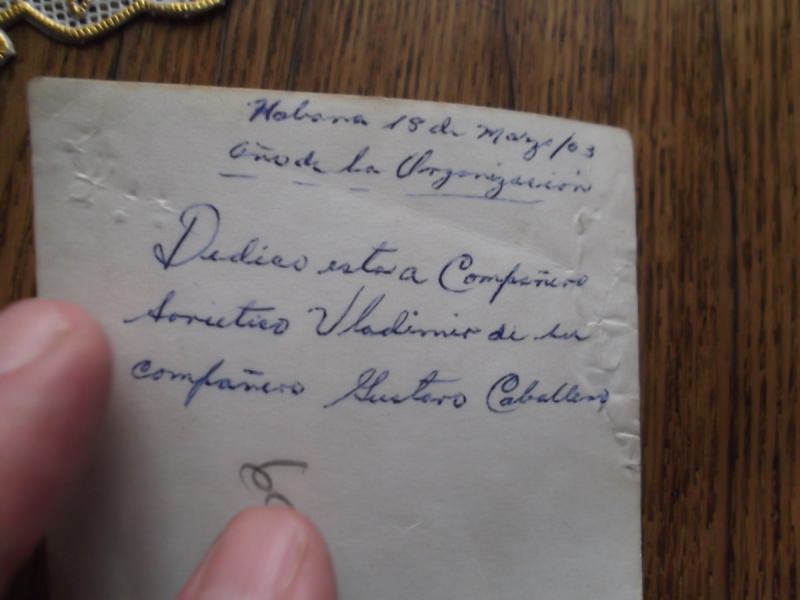 Habana 18 de Marzo/63
año de la Organización
Dedico esta a Compañero
Sovietico Vladimir de su
compañero Gustavo Caballero